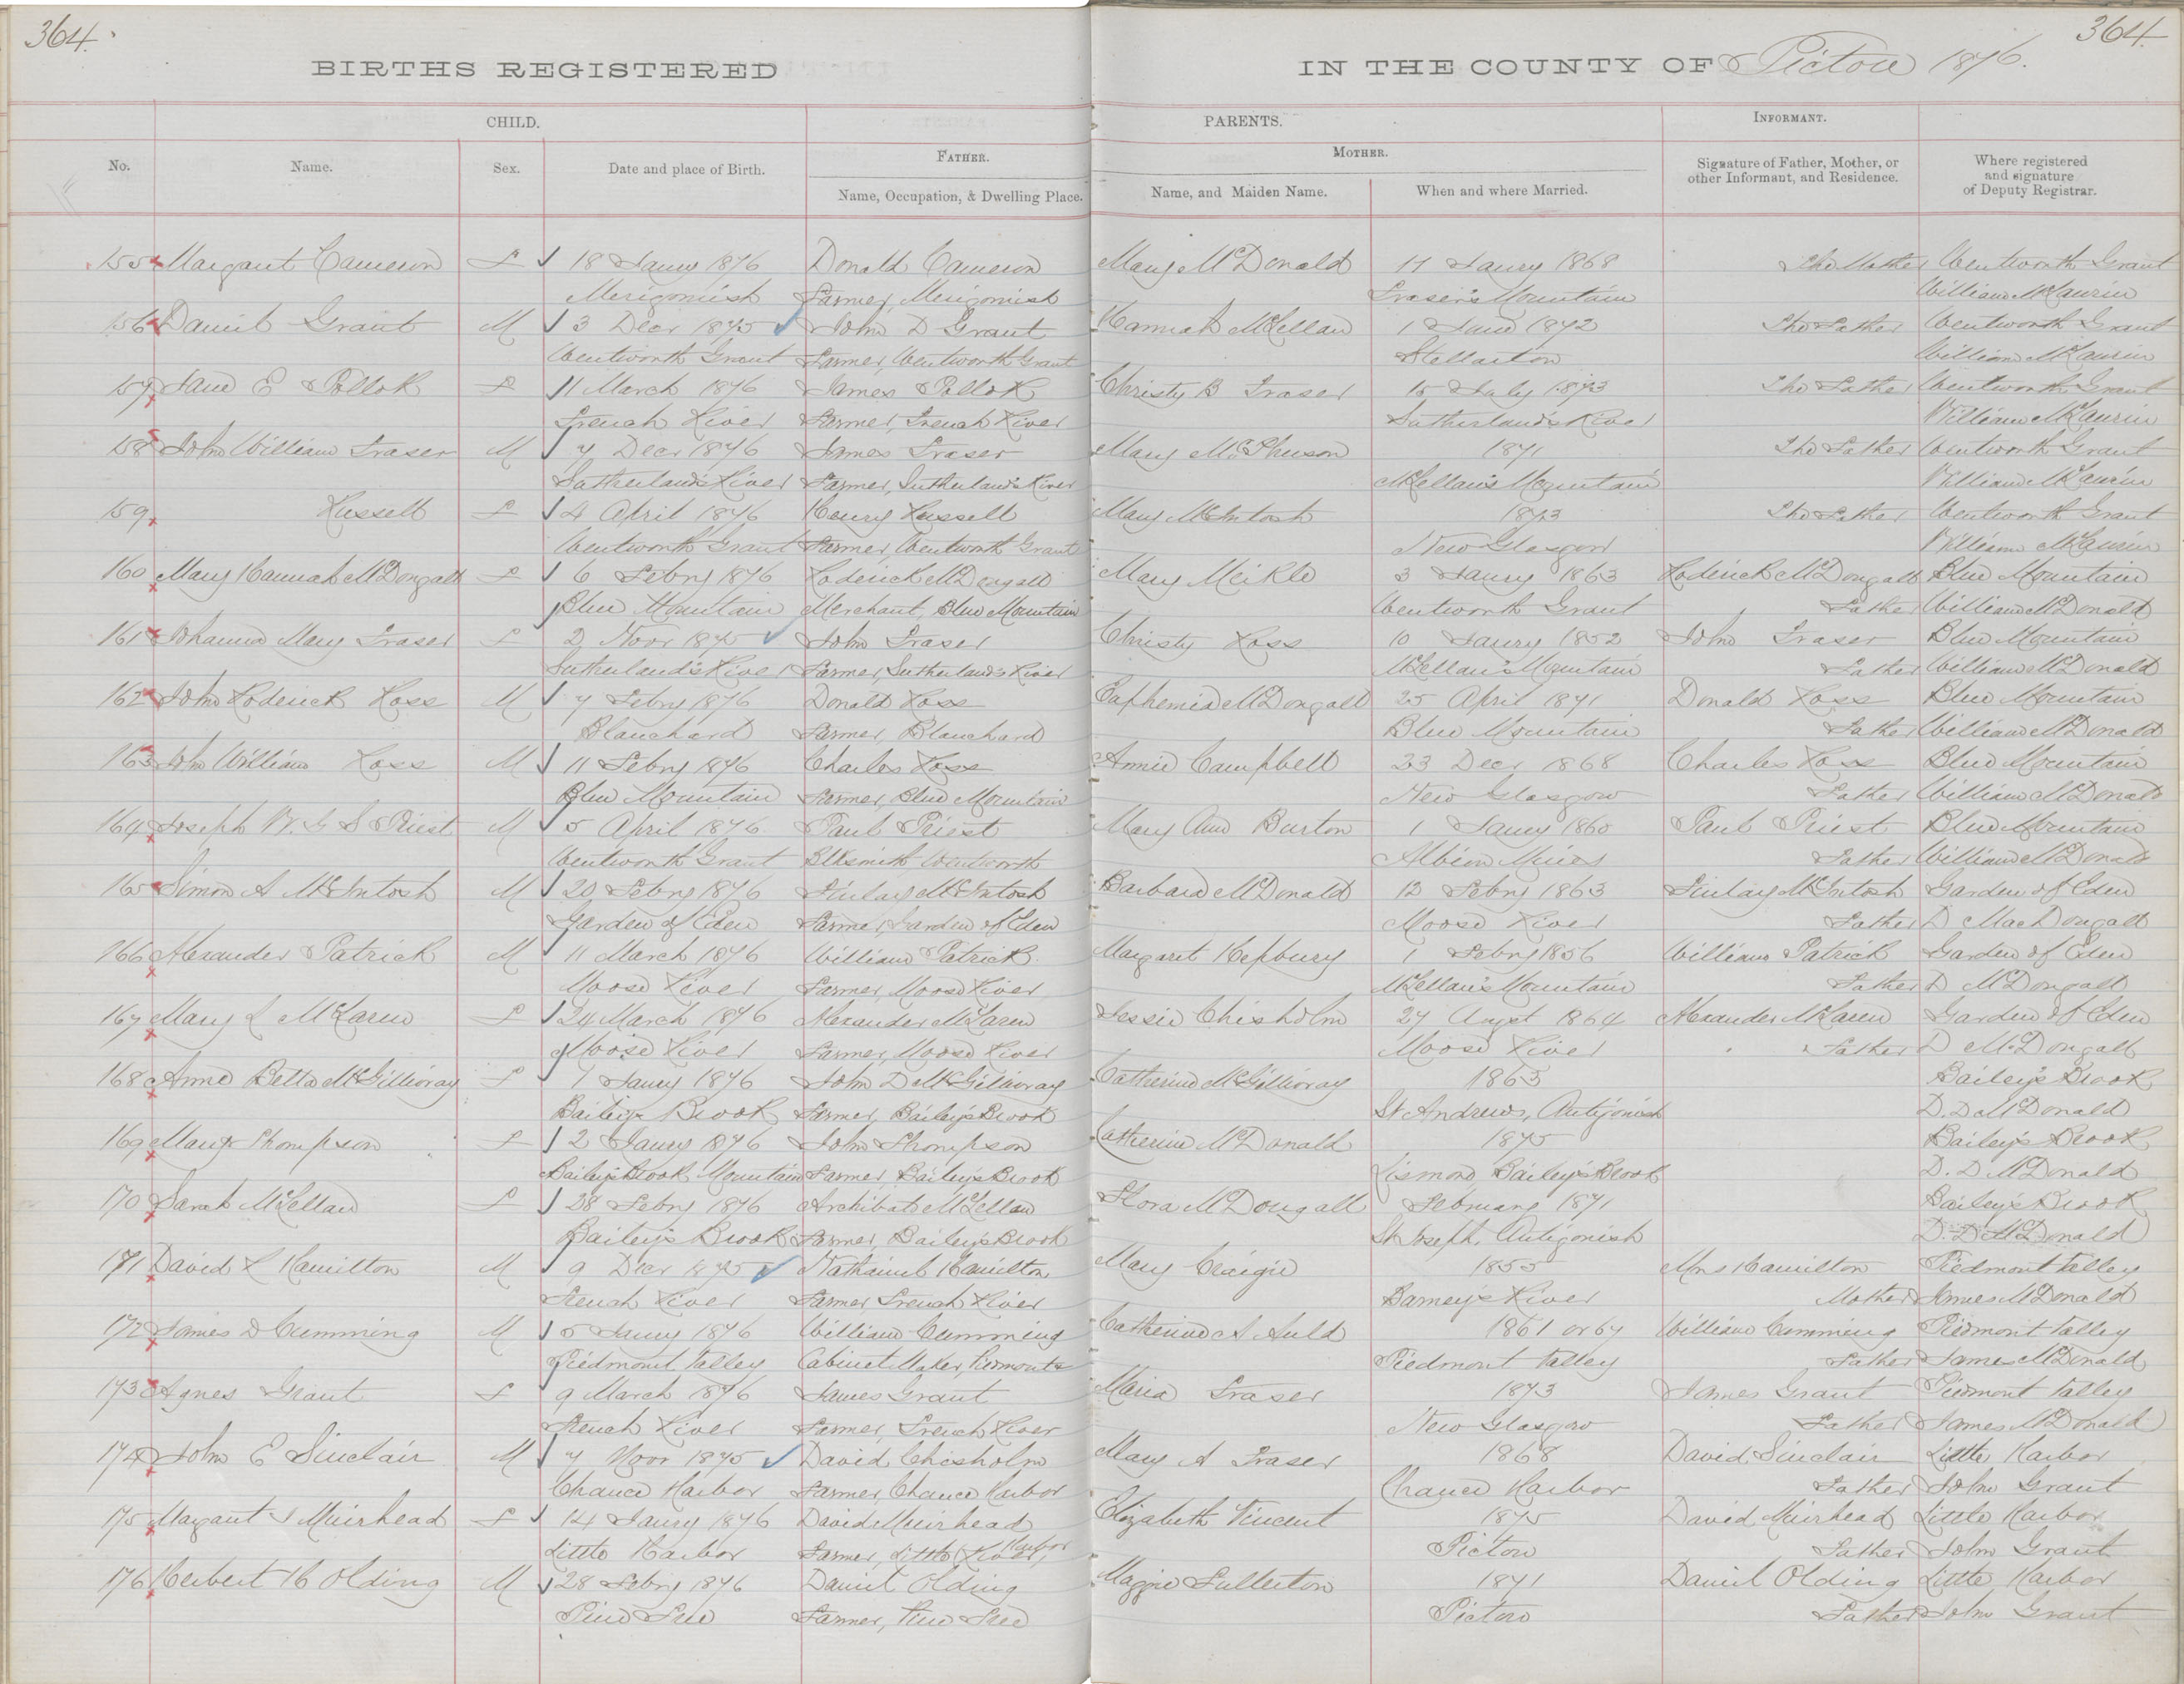 364.
364.
BIRTHS REGISTERED IN THE COUNTY OF Pictou 1876.
CHILD. PARENTS. INFORMANT.
No. Name. Sex. Date and place of Birth. FATHER. MOTHER. Signature of Father, Mother, or other Informant, and Residence. Where registered and signature of Deputy Registrar.
Name, Occupation, & Dwelling Place. Name, and Maiden Name. When and where Married.
155 Margaret Cameron F 18 Jany 1876 Donald Cameron Mary McDonald 17 Jany 1868 The Mother Wentworth Grant
Merigomish Farmer, Merigomish Fraser's Mountain William McLaurin
156 Daniel Grant M 3 Decr 1875 John D Grant Hannah McLellan 1 June 1872 The Father Wentworth Grant
Wentworth Grant Farmer, Wentworth Grant Stellarton William McLaurin
157 Jane E Pollok F 11 March 1876 James Pollok Christy B Fraser 15 July 1873 The Father Wentworth Grant
French River Farmer, French River Sutherland's River William McLaurin
158 John William Fraser M 7 Decr 1876 James Fraser Mary McPherson 1871 The Father Wentworth Grant
Sutherland's River Farmer, Sutherland's River McLellan's Mountain William McLaurin
159 Russell F 4 April 1876 Henry Russell Mary McIntosh 1873 The Father Wentworth Grant
Wentworth Grant Farmer, Wentworth Grant New Glasgow William McLaurin
160 Mary Hannah McDougall F 6 Febry 1876 Roderick McDougall Mary Meikle 3 Jany 1863 Roderick McDougall Blue Mountain
Blue Mountain Merchant, Blue Mountain Wentworth Grant Father William McDonald
161 Johanna Mary Fraser F 2 Novr 1875 John Fraser Christy Ross 10 Jany 1852 John Fraser Blue Mountain
Sutherland's River Farmer, Sutherland's River McLellan's Mountain Father William McDonald
162 John Roderick Ross M 7 Febry 1876 Donald Ross Euphemia McDougall 25 April 1871 Donald Ross Blue Mountain
Blanchard Farmer, Blanchard Blue Mountain Father William McDonald
163 John William Ross M 11 Febry 1876 Charles Ross Annie Campbell 23 Decr 1868 Charles Ross Blue Mountain
Blue Mountain Farmer, Blue Mountain New Glasgow Father William McDonald
164 Joseph W. G S Priest M 5 April 1876 Paul Priest Mary Ann Burton 1 Jany 1860 Paul Priest Blue Mountain
Wentworth Grant Blksmith, Wentworth Albion Mines Father William McDonald
165 Simon A McIntosh M 20 Febry 1876 Finlay McIntosh Barbara McDonald 12 Febry 1863 Finlay McIntosh Garden of Eden
Garden of Eden Farmer, Garden of Eden Moose River Father D MacDougall
166 Alexander Patrick M 11 March 1876 William Patrick Margaret Hepburn 1 Febry 1856 William Patrick Garden of Eden
Moose River Farmer, Moose River McLellan's Mountain Father D McDougall
167 Mary L McLaren F 24 March 1876 Alexander McLaren Jessie Chisholm 27 Augst 1864 Alexander McLaren Garden of Eden
Moose River Farmer, Moose River Moose River Father D McDougall
168 Anne Bella McGillivray F 1 Jany 1876 John D McGillivray Catherine McGillivray 1863 Bailey's Brook
Bailey's Brook Farmer, Bailey's Brook St Andrews, Antigonish D. D McDonald
169 Mary Thompson F 2 Jany 1876 John Thompson Catherine McDonald 1875 Bailey's Brook
Bailey's Brook Mountain Farmer, Bailey's Brook Lismore, Bailey's Brook D. D McDonald
170 Sarah McLellan F 28 Febry 1876 Archibald McLellan Flora McDougall February 1871 Bailey's Brook
Bailey's Brook Farmer, Bailey's Brook St Joseph, Antigonish D. D McDonald
171 David L Hamilton M 9 Decr 1875 Nathaniel Hamilton Mary Craigie 1855 Mrs Hamilton Piedmont Valley
French River Farmer French River Barney's River Mother James McDonald
172 James D Cumming M 5 Jany 1876 William Cumming Catherine A Auld 1861 or 67 William Cumming Piedmont Valley
Piedmont Valley Cabinet Maker, Piedmont Piedmont Valley Father James McDonald
173 Agnes Grant F 9 March 1876 James Grant Maria Fraser 1873 James Grant Piedmont Valley
French River Farmer, French River New Glasgow Father James McDonald
174 John E Sinclair M 7 Novr 1875 David Chisholm Mary A Fraser 1868 David Sinclair Little Harbor
Chance Harbor Farmer, Chance Harbor Chance Harbor Father John Grant
175 Margaret J Muirhead F 14 Jany 1876 David Muirhead Elizabeth Vincent 1875 David Muirhead Little Harbor
Little Harbor Farmer, Little River, Harbor Pictou Father John Grant
176 Herbert H Olding M 28 Febry 1876 Daniel Olding Maggie Fullerton 1871 Daniel Olding Little Harbor
Pine Tree Farmer, Pine Tree Pictou Father John Grant